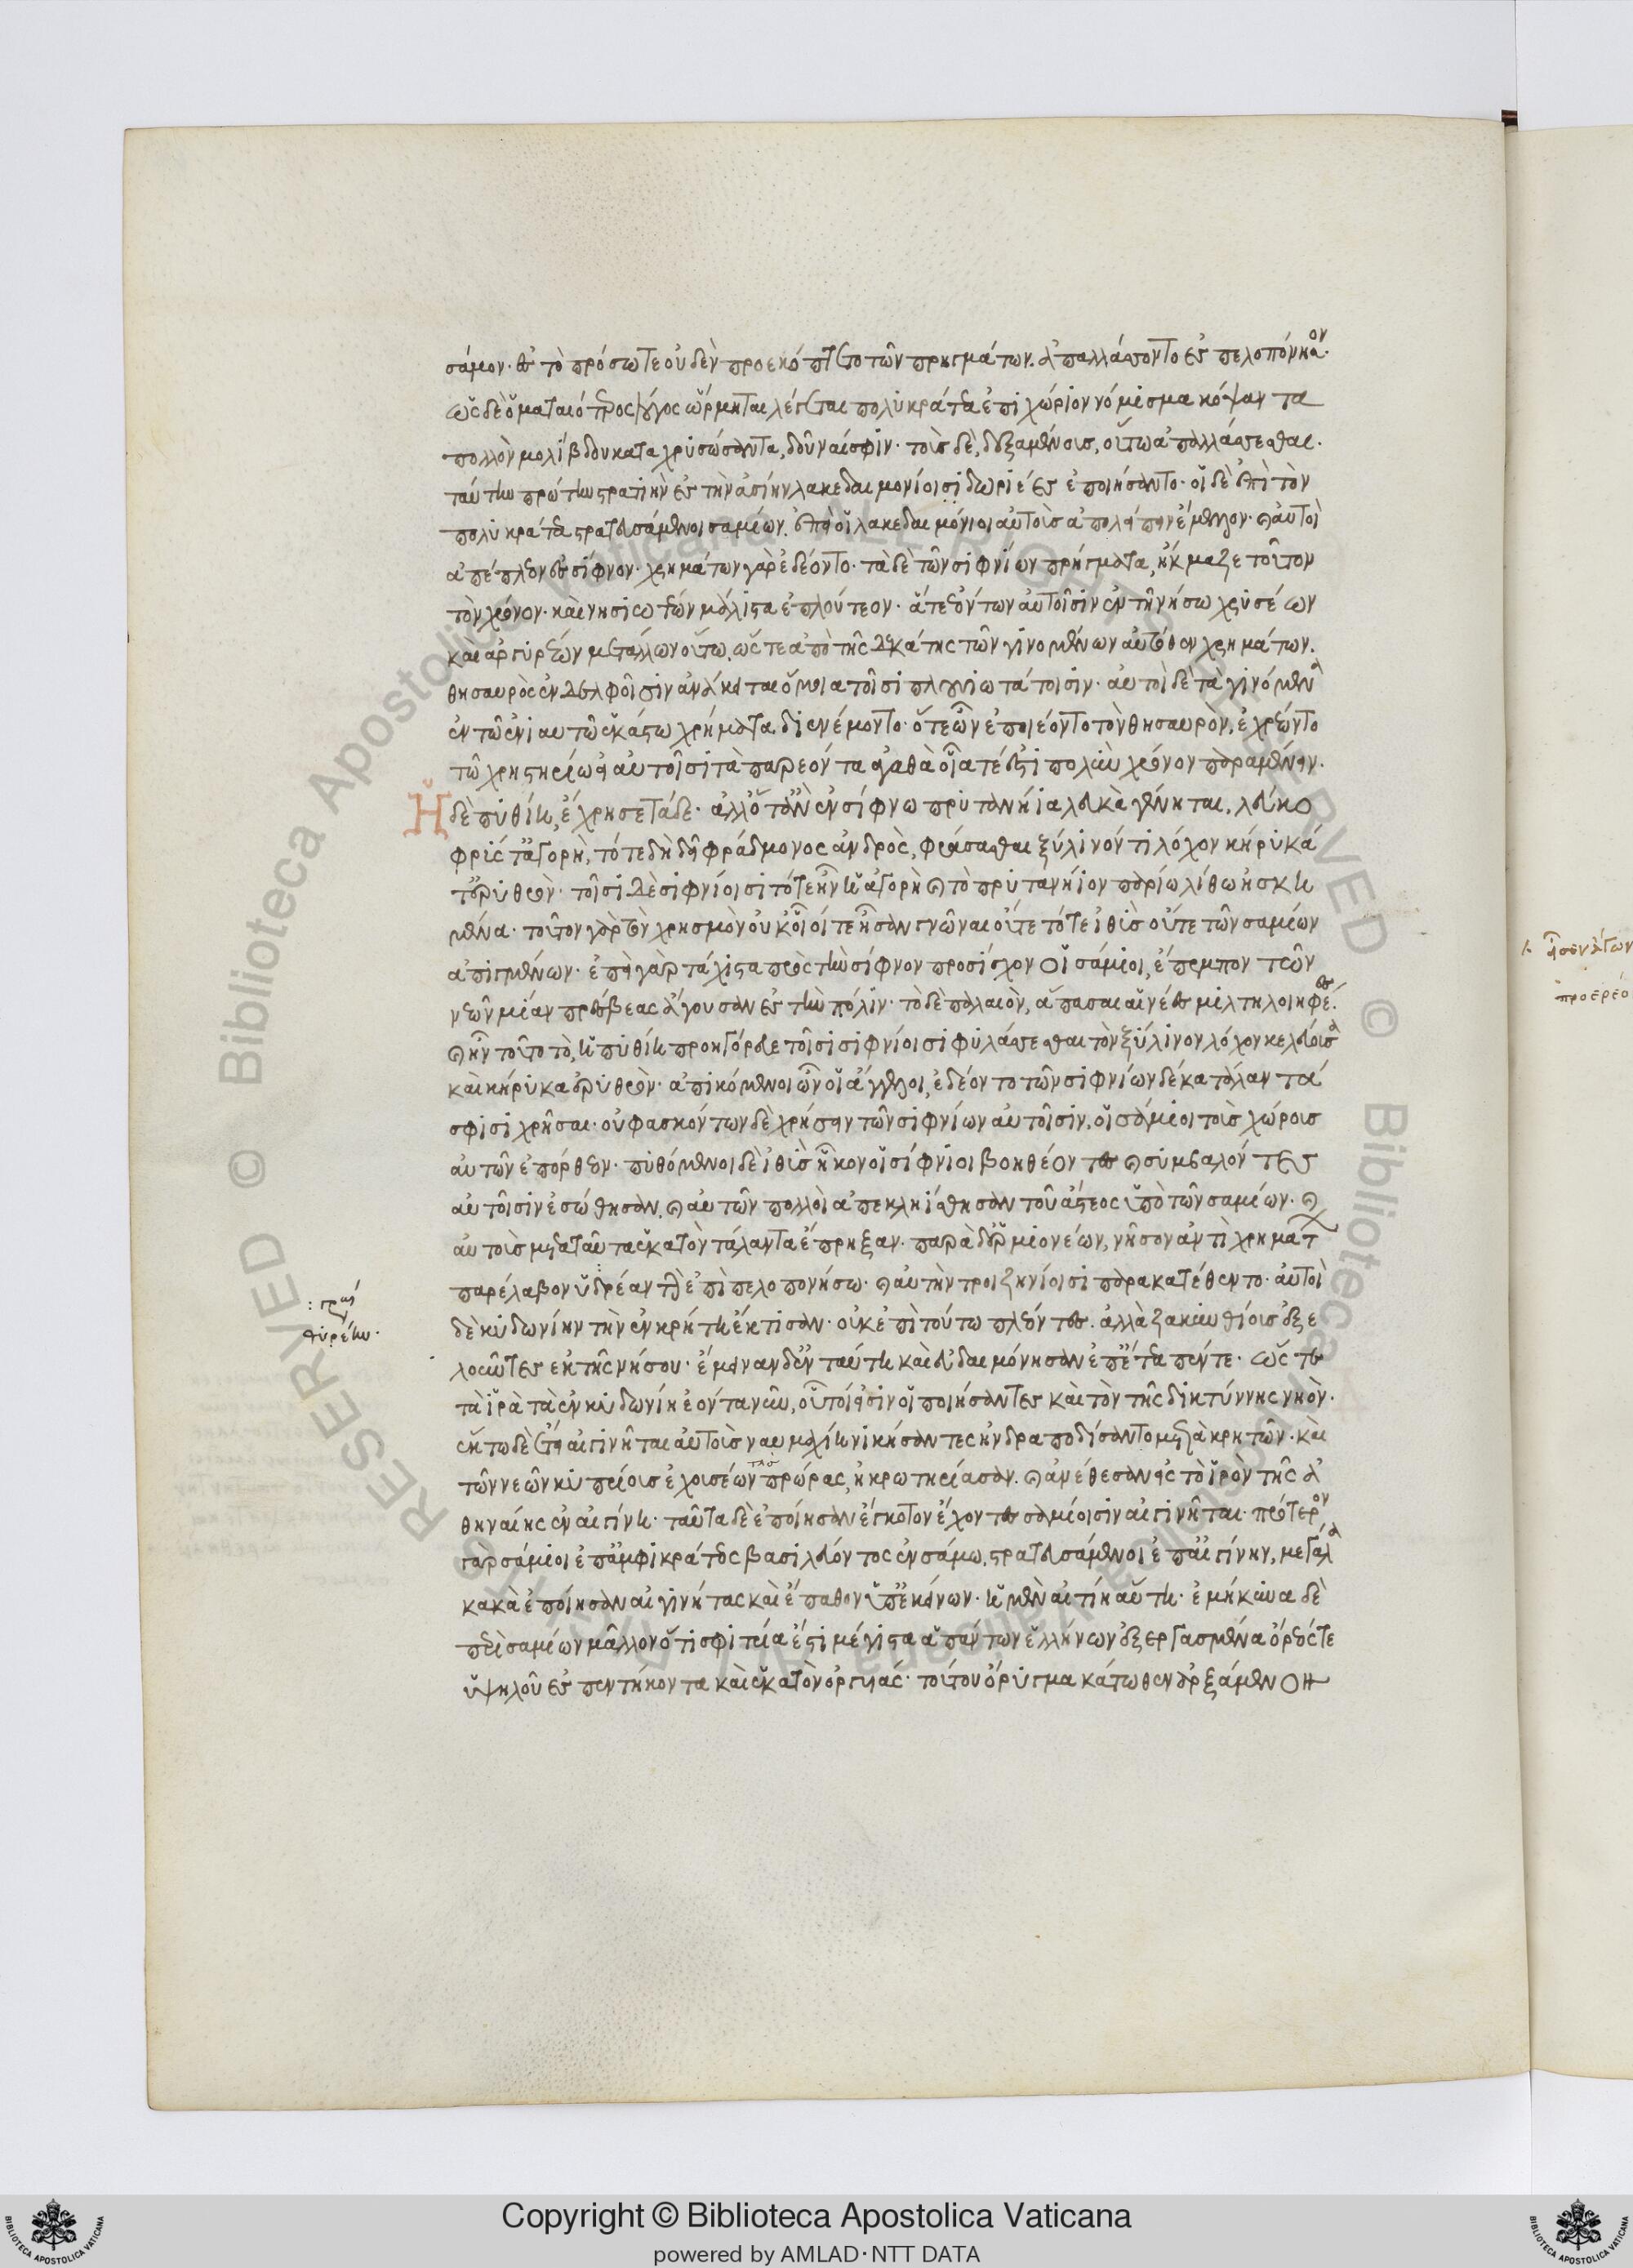 σάμον· ἐς τὸ πρόσω τε οὐδὲν προεκόπτετο τῶν πρηγμάτων. ἀπαλλάσσοντο ἐς πελοπόννησον·
ὡς δὲ ὁ ματαιότερος λόγος ὥρμηται λέγεται πολυκράτεα ἐπιχώριον νόμισμα κόψαντα
πολλὸν μολίβδου καταχρυσώσαντα, δοῦναί σφιν· τοὺς δὲ, δεξαμένους, οὕτω ἀπαλλάσσεσθαι.
ταύτην πρώτην στρατιὴν ἐς τὴν ἀσίην λακεδαιμόνιοισι δωριέες ἐποιήσαντο· οἱ δὲ ἐπὶ τὸν
πολυκράτεα στρατευσάμενοι σαμίων. ἐπεὶ οἱ λακεδαιμόνιοι αὐτοὺς ἀπολείπειν ἔμελλον· καὶ αὐτοὶ
ἀπέπλεον ἐς σίφνον· χρημάτων γὰρ ἐδέοντο· τὰ δὲ τῶν σιφνίων πρήγματα, ἤκμαζε τοῦτον
τὸν χρόνον· καὶ νησιωτέων μάλιστα ἐπλούτεον· ἅτε ἐόντων αὐτοῖσιν ἐν τῇ νήσω χρυσέων
καὶ ἀργυρέων μετάλλων οὕτω, ὥστε ἀπὸ τῆς δεκάτης τῶν γινομένων αὐτόθεν χρημάτων.
θησαυρὸς ἐν δελφοῖσιν ἀνάκειται ὅμοια τοῖσι πλουσιωτάτοισιν· αὐτοὶ δὲ τὰ γινόμενα
ἐν τῶ ἐνιαυτῶ ἑκάστω χρήματα διενέμοντο· ὅτε ὦν ἐποιέοντο τὸν θησαυρὸν, ἐχρέωντο
τῶ χρηστηρίω εἰ αὐτοῖσι τὰ παρεόντα ἀγαθὰ οἷά τέ ἐστι πολλὸν χρόνον παραμένειν.
Ἡ δὲ πυθίη, ἔχρησε τάδε· ἀλλ' ὅταν ἐν σίφνω πρυτανήια λευκὰ γένηται, λεύκο
φρύς τ' ἀγορὴ, τότε δὴ δεῖ φράδμονος ἀνδρὸς, φράσασθαι ξύλινόν τι λόχον κήρυκά
τ' ἐρυθρὸν· τοῖσι δὲ σιφνίοισι τότε ἦν ἡ ἀγορὴ καὶ τὸ πρυτανήιον παρίω λίθω ἠσκη
μένα· τοῦτον γὰρ τὸν χρησμὸν οὐκ οἷοί τε ἦσαν γνῶναι οὔτε τότε ἰθὺς οὔτε τῶν σαμίων
ἀπιγμένων· ἐπεὶ γὰρ τάχιστα πρὸς τὴν σίφνον προσίσχον οἱ σάμιοι, ἔπεμπον τῶν
νεῶν μίαν πρέσβεας ἄγουσαν ἐς τὴν πόλιν· τὸ δὲ παλαιὸν, ἅπασαι αἱ νέες μιλτηλοιφέες.
καὶ ἦν τοῦτο τὸ, ἡ πυθίη προηγόρευε τοῖσι σιφνίοισι φυλάσσεσθαι τὸν ξύλινον λόχον κελεύουσα
καὶ κήρυκα ἐρυθρὸν· ἀπικόμενοι ὦν οἱ ἄγγελοι, ἐδέοντο τῶν σιφνίων δέκα τάλαντά
σφισι χρῆσαι· οὐ φασκόντων δὲ χρήσειν τῶν σιφνίων αὐτοῖσιν, οἱ σάμιοι τοὺς χώρους
αὐτῶν ἐπόρθεον· πυθόμενοι δὲ ἰθὺς ἧκον οἱ σίφνιοι βοηθέοντες καὶ συμβαλόντες
αὐτοῖσιν ἑσώθησαν. καὶ αὐτῶν πολλοὶ ἀπεκληίσθησαν τοῦ ἄστεος ὑπὸ τῶν σαμίων· καὶ
αὐτοὺς μετὰ ταῦτα ἑκατὸν τάλαντα ἔπρηξαν· παρὰ δὲ ἑρμιονέων, νῆσον ἀντὶ χρημάτων
παρέλαβον ὑδρέαν τὴν ἐπὶ πελοπονήσω· καὶ αὐτὴν τροιζηνίοισι παρακατέθεντο· αὐτοὶ
: πρὸς
θυρέην·
δὲ κυδωνίην τὴν ἐν κρήτη ἔκτισαν· οὐκ ἐπὶ τούτω πλέοντες. ἀλλὰ ζακυνθίους ἐξε
λοῶντες ἐκ τῆς νήσου· ἔμειναν δ' ἐν ταύτη καὶ εὐδαιμόνησαν ἐπ' ἔτεα πέντε· ὥστε
τὰ ἱρὰ τὰ ἐν κυδωνίη ἐόντα νῦν, οὗτοί εἰσιν οἱ ποιήσαντες καὶ τὸν τῆς δικτύννης νηὸν·
ἕκτω δὲ ἔτει αἰγινῆται αὐτοὺς ναυμαχίη νικήσαντες ἠνδραποδίσαντο μετὰ κρητῶν· καὶ
τῶν νεῶν κυπρίους ἐχουσέων τὰς πρώρας, ἠκρωτηρίασαν. καὶ ἀνέθεσαν εἰς τὸ ἱρὸν τῆς ἀ
θηναίης ἐν αἰγίνη· ταῦτα δὲ ἐποίησαν ἔγκοτον ἔχοντες σαμίοισιν αἰγινῆται· πρότερον
γὰρ σάμιοι ἐπ' ἀμφικράτεος βασιλεύοντος ἐν σάμω, στρατευσάμενοι ἐπ' αἴγινην, μεγάλα
κακὰ ἐποίησαν αἰγινήτας καὶ ἔπαθον ὑπ' ἐκείνων· ἡ μὲν αἰτίη αὕτη· ἐμήκυνα δὲ
περὶ σαμίων μᾶλλον ὅτι σφι τρία ἐστὶ μέγιστα ἁπάντων ἑλλήνων ἐξεργασμένα ὄρεός τε
ὑψηλοῦ ἐς πεντήκοντα καὶ ἑκατὸν ὀργυιάς· τούτου ὄρυγμα κάτωθεν ἀρξάμενον
Copyright © Biblioteca Apostolica Vaticana
powered by AMLAD·NTT DATA